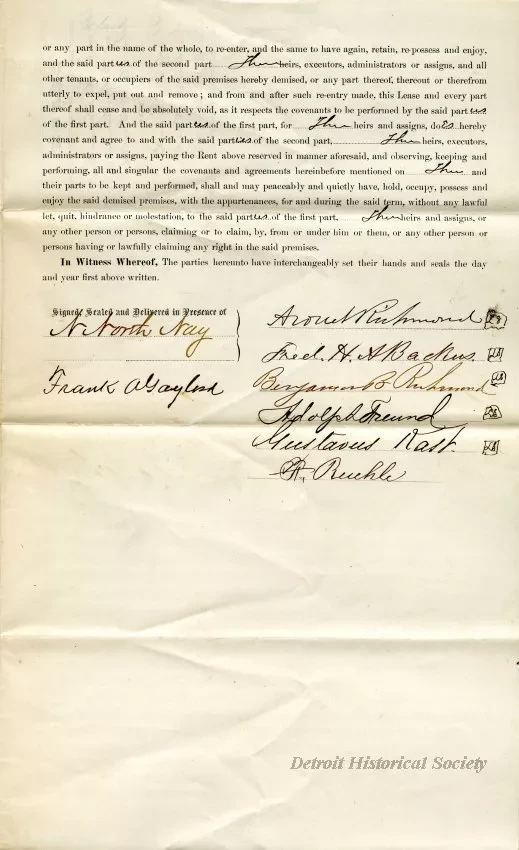 or any part in the name of the whole, to re-enter, and the same to have again, retain, re-possess and enjoy,
and the said parties of the second part Their heirs, executors, administrators or assigns, and all
other tenants, or occupiers of the said premises hereby demised, or any part thereof, thereout or therefrom
utterly to expel, put out and remove; and from and after such re-entry made, this Lease and every part
thereof shall cease and be absolutely void, as it respects the covenants to be performed by the said parties
of the first part. And the said parties of the first part, for Their heirs and assigns, does hereby
covenant and agree to and with the said parties of the second part, Their heirs, executors,
administrators or assigns, paying the Rent above reserved in manner aforesaid, and observing, keeping and
performing, all and singular the covenants and agreements hereinbefore mentioned on Their and
their parts to be kept and performed, shall and may peaceably and quietly have, hold, occupy, possess and
enjoy the said demised premises, with the appurtenances, for and during the said term, without any lawful
let, quit, hindrance or molestation, to the said parties of the first part, Their heirs and assigns, or
any other person or persons, claiming or to claim, by, from or under him or them, or any other person or
persons having or lawfully claiming any right in the said premises.
In Witness Whereof, The parties hereunto have interchangeably set their hands and seals the day
and year first above written.
Signed, Sealed and Delivered in Presence of
N North Nay
Frank A Gaylord
Arouet Richmond
Fred. H. A Backus.
Benjamin B Richmond
Adolph Freund
Gustavus Kast.
R. Ruehle
Detroit Historical Society